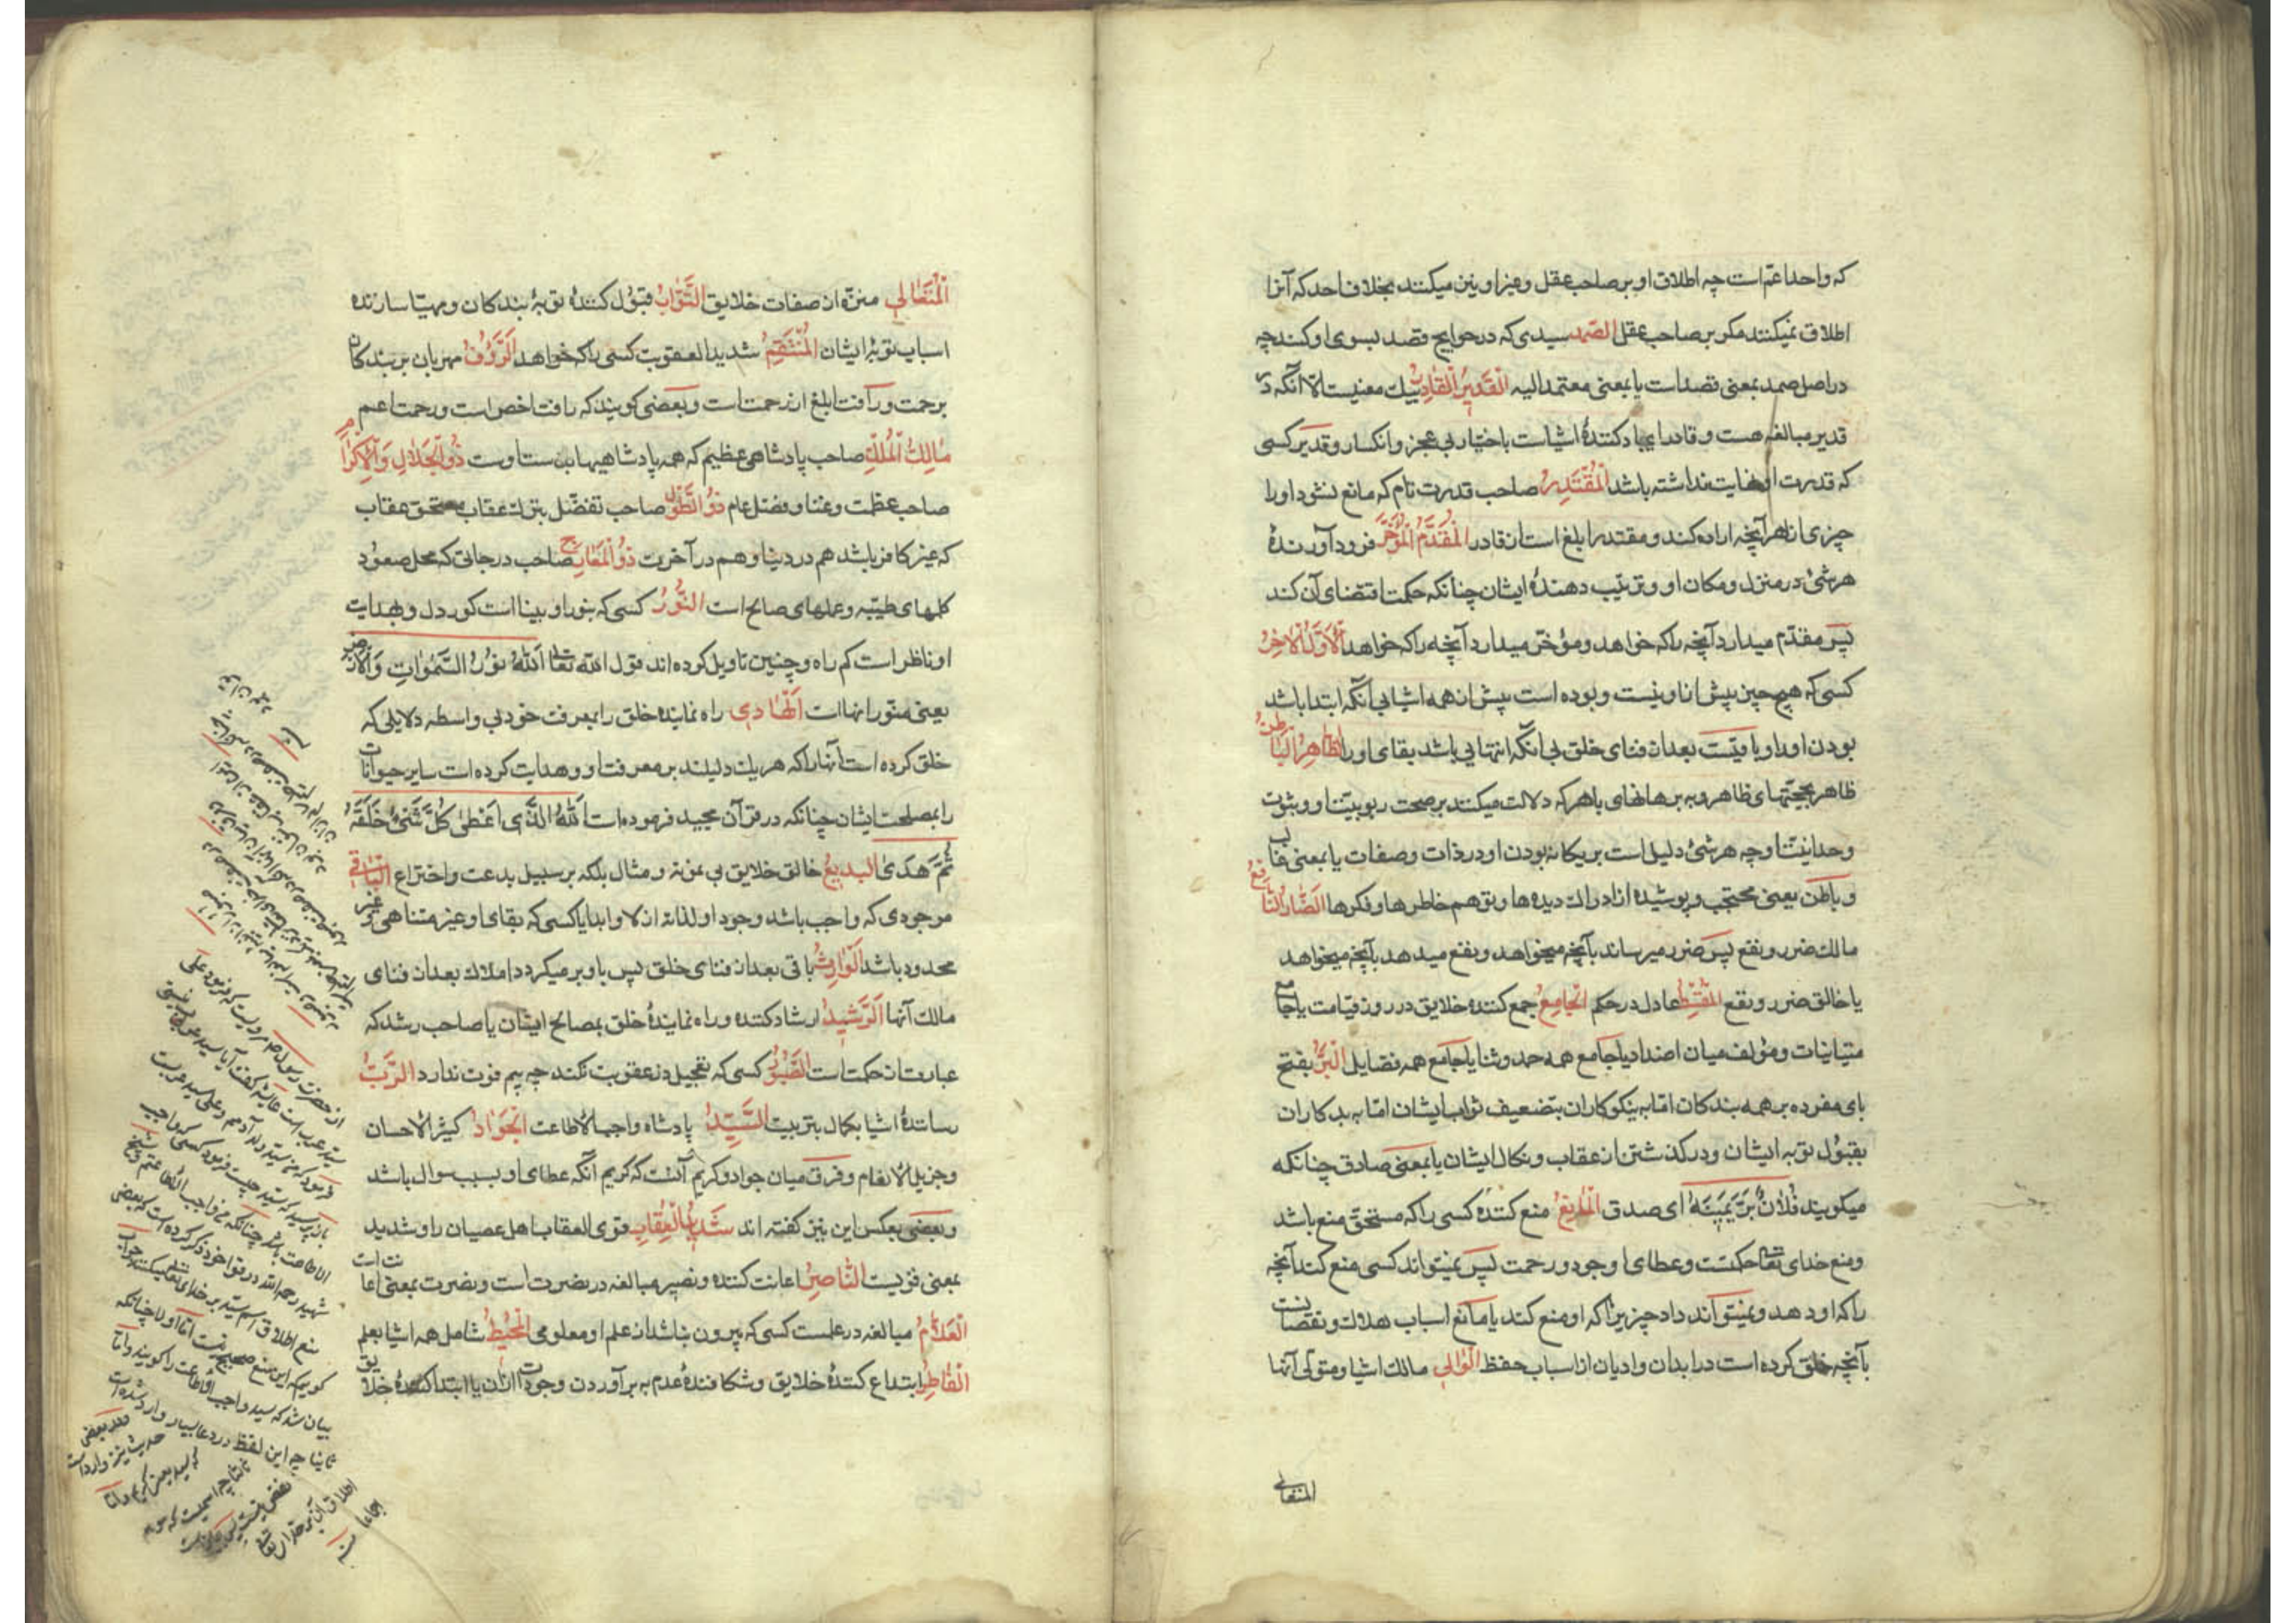 که واحد اعمّ است چه اطلاق او بر صاحب عقل و غیر او نیز میکنند بخلاف احد که آنرا
اطلاق نمیکنند مکر بر صاحب عقل الصّمد سیدی که در حوایج قصد بسوی او کنند چه
در اصل صمد بمعنی قصد است یا بمعنی معتمد الیه القَدیرُ القادِرُ بیك معنیست الّا آنکه در
قدیر مبالغه هست و قادر ایجاد کنندهٔ اشیاست باختیار بی عجز و انکسار و قدیر کسی
که قدرت او نهایت نداشته باشد المُقْتَدِرُ صاحب قدرت تام که مانع نشود او را
چیزی از هر آنچه اراده کند و مقتدر ابلغ است از قادر المُقَدِّمُ المُؤَخِّرُ فرود آورندهٔ
هر شئ در منزل و مکان او و ترتیب دهندهٔ ایشان چنانکه حکمت اقتضای آن کند
پس مقدّم میدارد آنچه را که خواهد و مؤخّر میدارد آنچه را که خواهد الأوّلُ الآخِرُ
کسی که هیچ چیز پیش از او نیست و بوده است پیش از همه اشیا بی آنکه ابتدا باشد
بودن او را و باقیست بعد از فنای خلق بی آنکه انتهایی باشد بقای او را الظّاهِرُ الباطِنُ
ظاهر بحجّتهای ظاهر و به برهانهای باهر که دلالت میکند بر صحت ربوبیّت او و ثبوت
وحدانیّت او چه هر شئ دلیل است بر یکانه بودن او در ذات و صفات یا بمعنی غالب
و باطن یعنی محتجب و پوشیده از ادراك دیده ها و توهم خاطرها و فکرها الضّارُّ النّافعُ
مالك ضرر و نفع پس ضرر میرساند بآنچه میخواهد و نفع میدهد بآنچه میخواهد
یا خالق ضرر و نفع المُقْسِطُ عادل در حکم الجامِعُ جمع کننده خلایق در روز قیامت یا جامع
متباینات و مؤلف میان اضداد یا جامع همه حمد و ثنا یا جامع همه فضایل البَرُّ بفتح
بای مفرده بر همه بندکان امّا به نیکوکاران بتضعیف ثواب ایشان امّا به بدکاران
بقبول توبه ایشان و درکذشتن از عقاب و نکال ایشان یا بمعنی صادق چنانکه
میکویند فُلانٌ بَرَّ یَمینَهُ ای صدق المانِعُ منع کننده کسی را که مستحقّ منع باشد
و منع خدای تعالی حکمتست و عطای او جود و رحمت پس نمیتواند کسی منع کند آنچه
را که او دهد و نمیتواند داد چیزیرا که او منع کند یا مانع اسباب هلاك و نقصانست
بآنچه خلق کرده است در ابدان و ادیان از اسباب حفظ الوالی مالك اشیا و متولّی آنها
المتعالی
المُتَعالی منزّه از صفات خلایق التّوّابُ قبول کنندهٔ توبهٔ بندکان و مهیّا سازنده
اسباب توبهٔ ایشان المُنْتَقِمُ شدید العقوبت کسی را که خواهد الرّؤفُ مهربان بر بندکان
برحمت و رأفت ابلغ از رحمت است و بعضی کویند که رافت اخص است و رحمت اعم
مالِكُ المُلْكِ صاحب پادشاهی عظیم که همه پادشاهیها بدست اوست ذُو الجَلالِ وَ الإکْرامِ
صاحب عظمت و غنا و فضل عام ذُو الطّولِ صاحب تفضّل بترك عقاب مستحق عقاب
که غیر کافر باشد هم در دنیا و هم در آخرت ذُو المَعارِجِ صاحب درجاتی که محل صعود
کلمهای طیّبه و عملهای صالح است النُّورُ کسی که بنور او بیناست کور دل و بهدایت
او ناظر است کم راه و چنین تاویل کرده اند قول الله تعالی اَللّهُ نورُ السَّمواتِ وَ الأرضِ
یعنی منور انهاست اَلْهادی راه نماینده خلق را بمعرفت خود بی واسطه دلایلی که
خلق کرده است آنها را که هر یك دلیلند بر معرفت او و هدایت کرده است سایر حیوانات
را بمصلحت ایشان چنانکه در قرآن مجید فرموده است اَللّهُ الّذی اَعْطی کُلَّ شَئٍ خَلْقَهُ
ثُمَّ هَدی البدیعُ خالق خلایق بی نمونه و مثال بلکه بر سبیل بدعت و اختراع الباقی
موجودی که واجب باشد وجود او لذاته ازلا و ابدا یا کسی که بقای او غیر متناهی و غیر
محدود باشد الوارِثُ باقی بعد از فنای خلق پس باو بر میکردد املاك بعد از فنای
مالك آنها الرّشیدُ ارشاد کننده و راه نمایندهٔ خلق بمصالح ایشان یا صاحب رشد که
عبارت از حکمت است الصّبورُ کسی که تعجیل در عقوبت نکند چه بیم فوت ندارد الرَّبُّ
رسانندهٔ اشیا بکمال بتربیت السّیّدُ پادشاه واجب الاطاعت الجَوادُ کثیر الاحسان
و جزیل الانعام و فرق میان جواد و کریم آنست که کریم آنکه عطای او بسبب سوال باشد
و بعضی بعکس این نیز کفته اند شَدیدُ العِقابِ قوی العقاب اهل عصیان را و شدید
بمعنی قویست النّاصِرُ اعانت کننده و نصیر مبالغه در نصرت است و نصرت بمعنی اعانت است
العَلّامُ مبالغه در علمست کسی که بیرون نباشد از علم او معلومی المُحیطُ شامل همه اشیا بعلم
الفاطِرُ ابتداع کنندهٔ خلایق و شکافندهٔ عدم به برآوردن وجودات از آن یا ابتدا کنندهٔ خلایق
از حضرت رسول مرویست که فرمود علی
سید عرب است عایشه کفت آیا سید عرب تو نیستی
فرمود که من سید ولد آدمم و علی سید عرب
باز پرسید که سید چیست فرمود کسی که واجب
شهید رحمه الله در قواعد خود ذکر کرده است که بعضی
منع اطلاق اسم سید بر خدای تعالی میکنند جواب
کوییم که این منع صحیح نیست امّا اولا چنانکه
بیان شد که سید واجب الاطاعت را کویند و امّا
ثانیا چه این لفظ در دعا بسیار وارد شده است